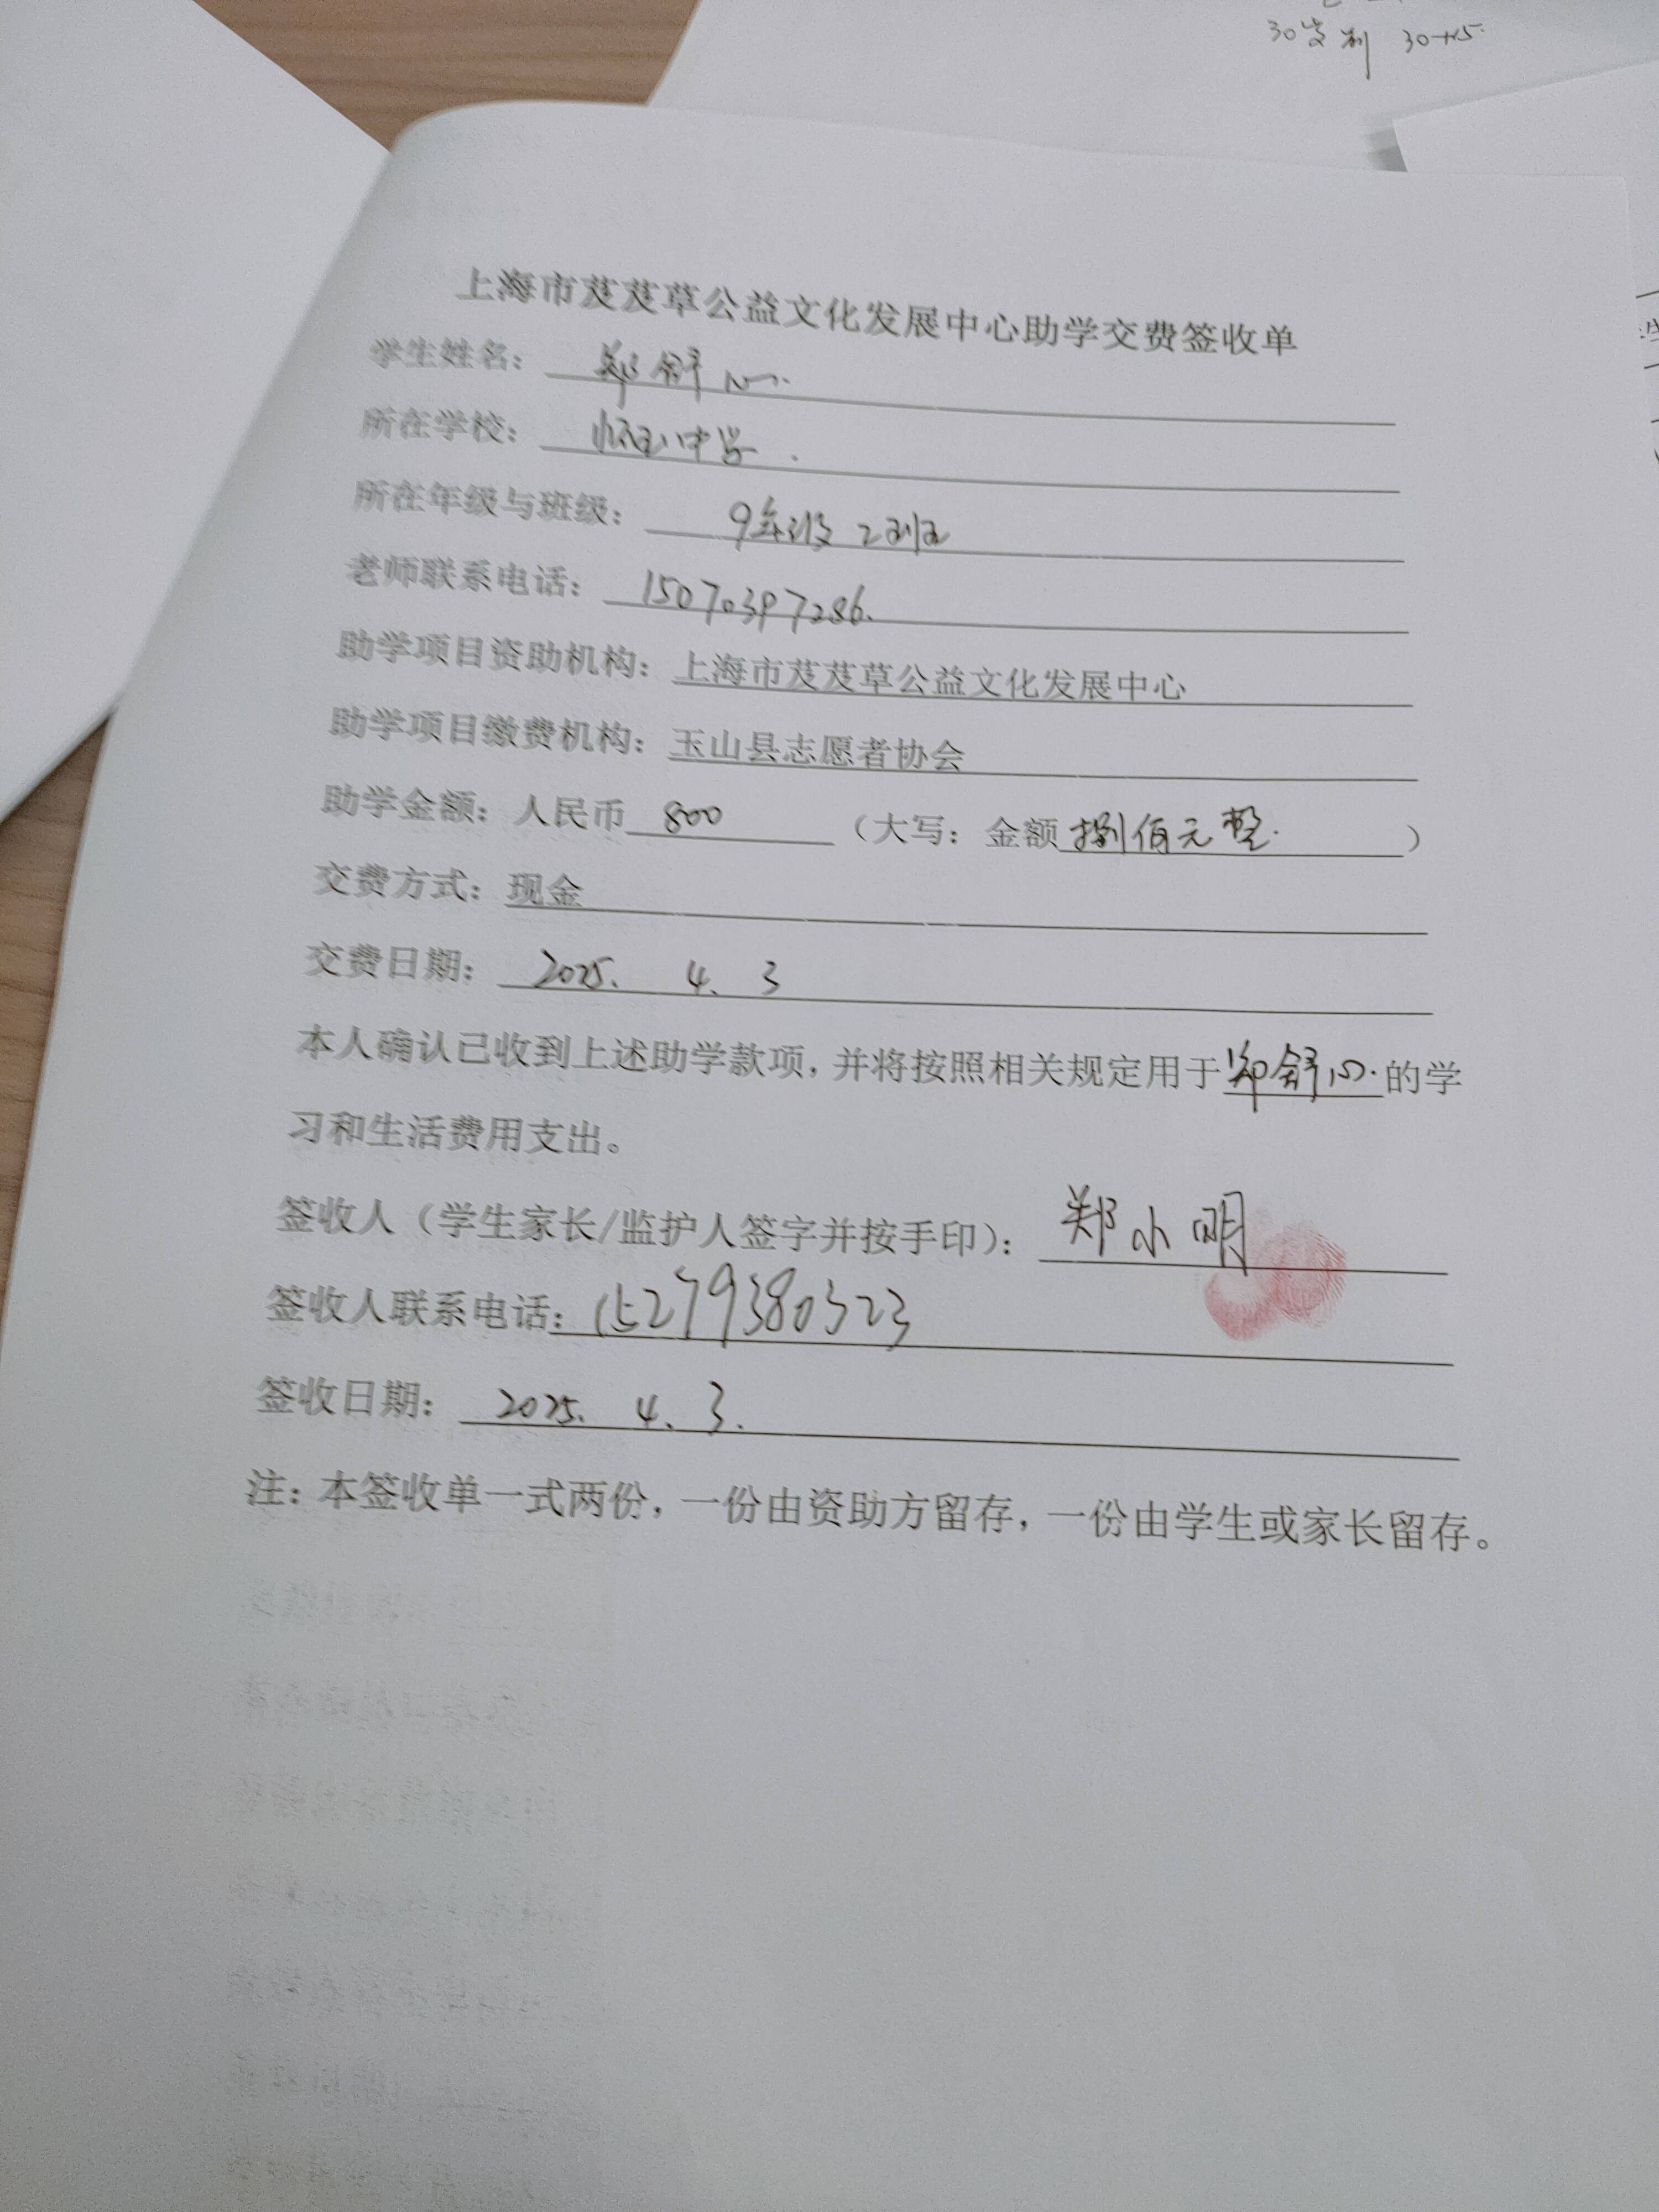 30岁 30+15
上海市芨芨草公益文化发展中心助学交费签收单
学生姓名：郑舒心
所在学校：怀玉中学
所在年级与班级：9年级 2班
老师联系电话：15070397286.
助学项目资助机构：上海市芨芨草公益文化发展中心
助学项目缴费机构：玉山县志愿者协会
助学金额：人民币 800 （大写：金额捌佰元整.）
交费方式：现金
交费日期：2025. 4. 3
本人确认已收到上述助学款项，并将按照相关规定用于郑舒心.的学
习和生活费用支出。
签收人（学生家长/监护人签字并按手印）：郑小明
签收人联系电话：15279380323
签收日期：2025. 4. 3.
注：本签收单一式两份，一份由资助方留存，一份由学生或家长留存。